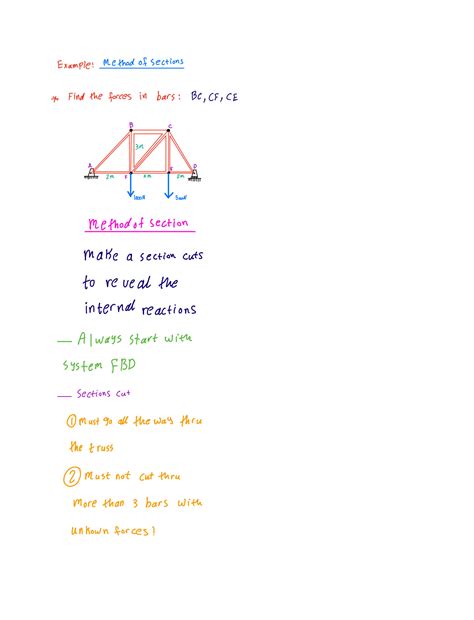 Example: Method of sections
Find the forces in bars: BC, CF, CE
B C
3m
A F E D
2m 2m
Method of section
make a section cuts
to reveal the
internal reactions
— Always start with
system FBD
— Sections cut
① Must go all the way thru
the truss
② Must not cut thru
more than 3 bars with
unknown forces!